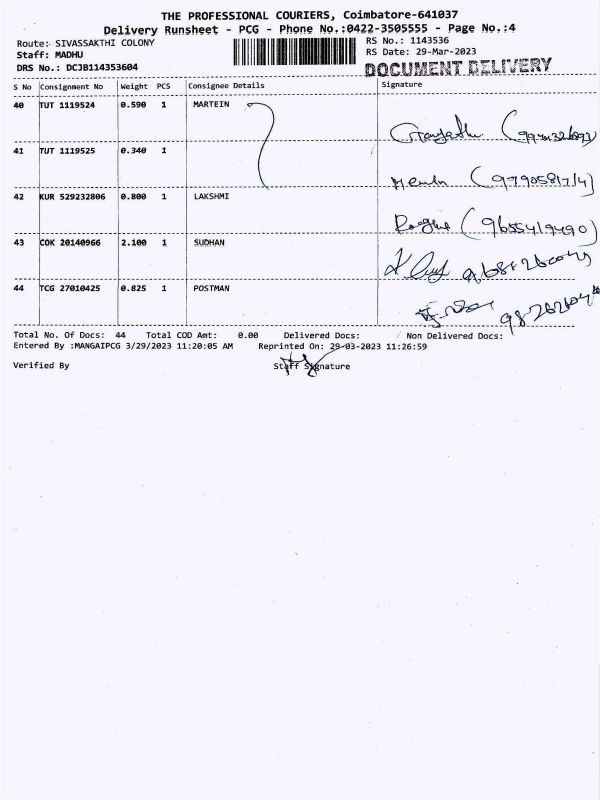 THE PROFESSIONAL COURIERS, Coimbatore-641037
Delivery Runsheet - PCG - Phone No.:0422-3505555 - Page No.:4
Route: SIVASSAKTHI COLONY
RS No.: 1143536
Staff: MADHU
RS Date: 29-Mar-2023
DRS No.: DCJB114353604
DOCUMENT DELIVERY
S No Consignment No Weight PCS Consignee Details Signature
40 TUT 1119524 0.590 1 MARTEIN
41 TUT 1119525 0.340 1
(9790581714)
42 KUR 529232806 0.800 1 LAKSHMI
(9655419490)
43 COK 20140966 2.100 1 SUDHAN
44 TCG 27010425 0.825 1 POSTMAN
Total No. Of Docs: 44 Total COD Amt: 0.00 Delivered Docs: Non Delivered Docs:
Entered By :MANGAIPCG 3/29/2023 11:20:05 AM Reprinted On: 29-03-2023 11:26:59
Verified By Staff Signature